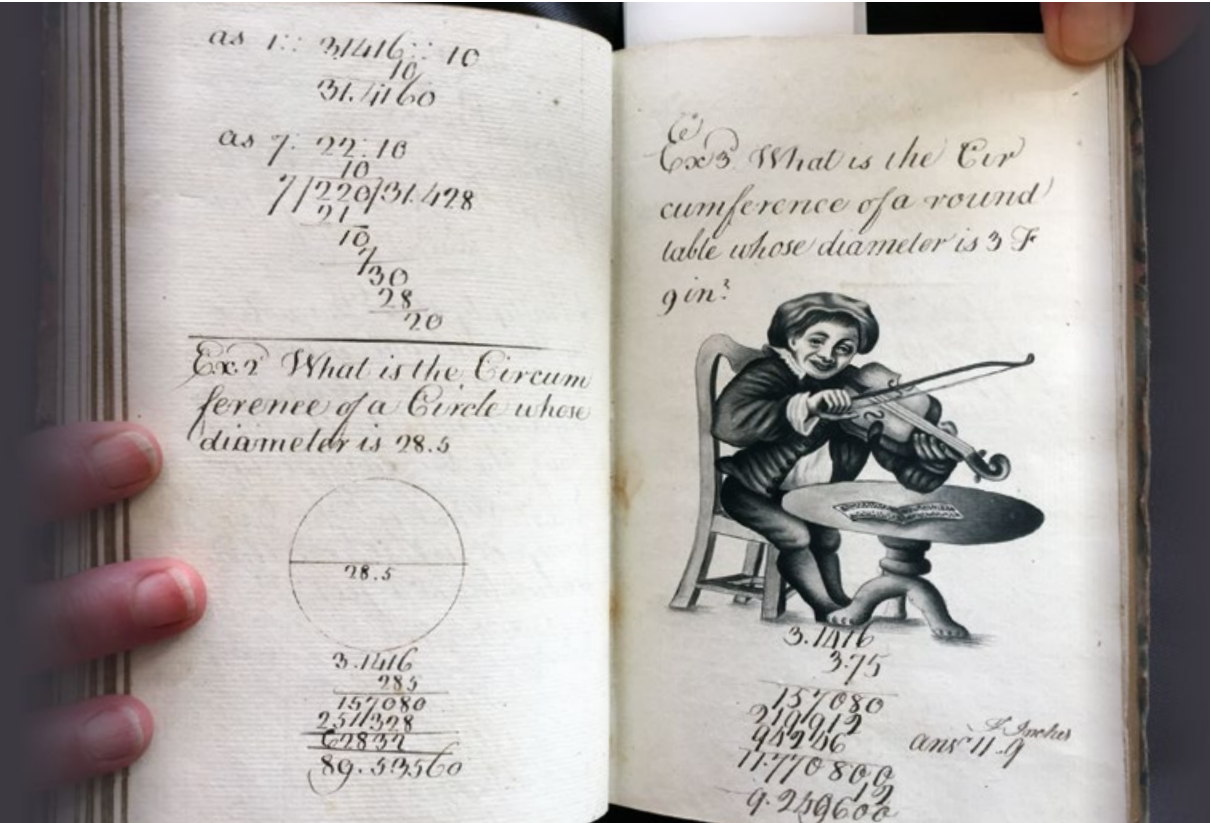 as 1:: 3.1416:: 10
10
31.4160
as 7: 22: 10
10
7)220(31.428
21
10
7
30
28
20
Ex. 2 What is the Circum
ference of a Circle whose
diameter is 28.5
28.5
3.1416
285
157080
251328
62832
89.53560
Ex 3 What is the Cir
cumference of a round
table whose diameter is 3 F
9 in?
3.1416
3.75
157080
219912
94246
ansr 11-9
F Inches
11.770800
12
9.249600